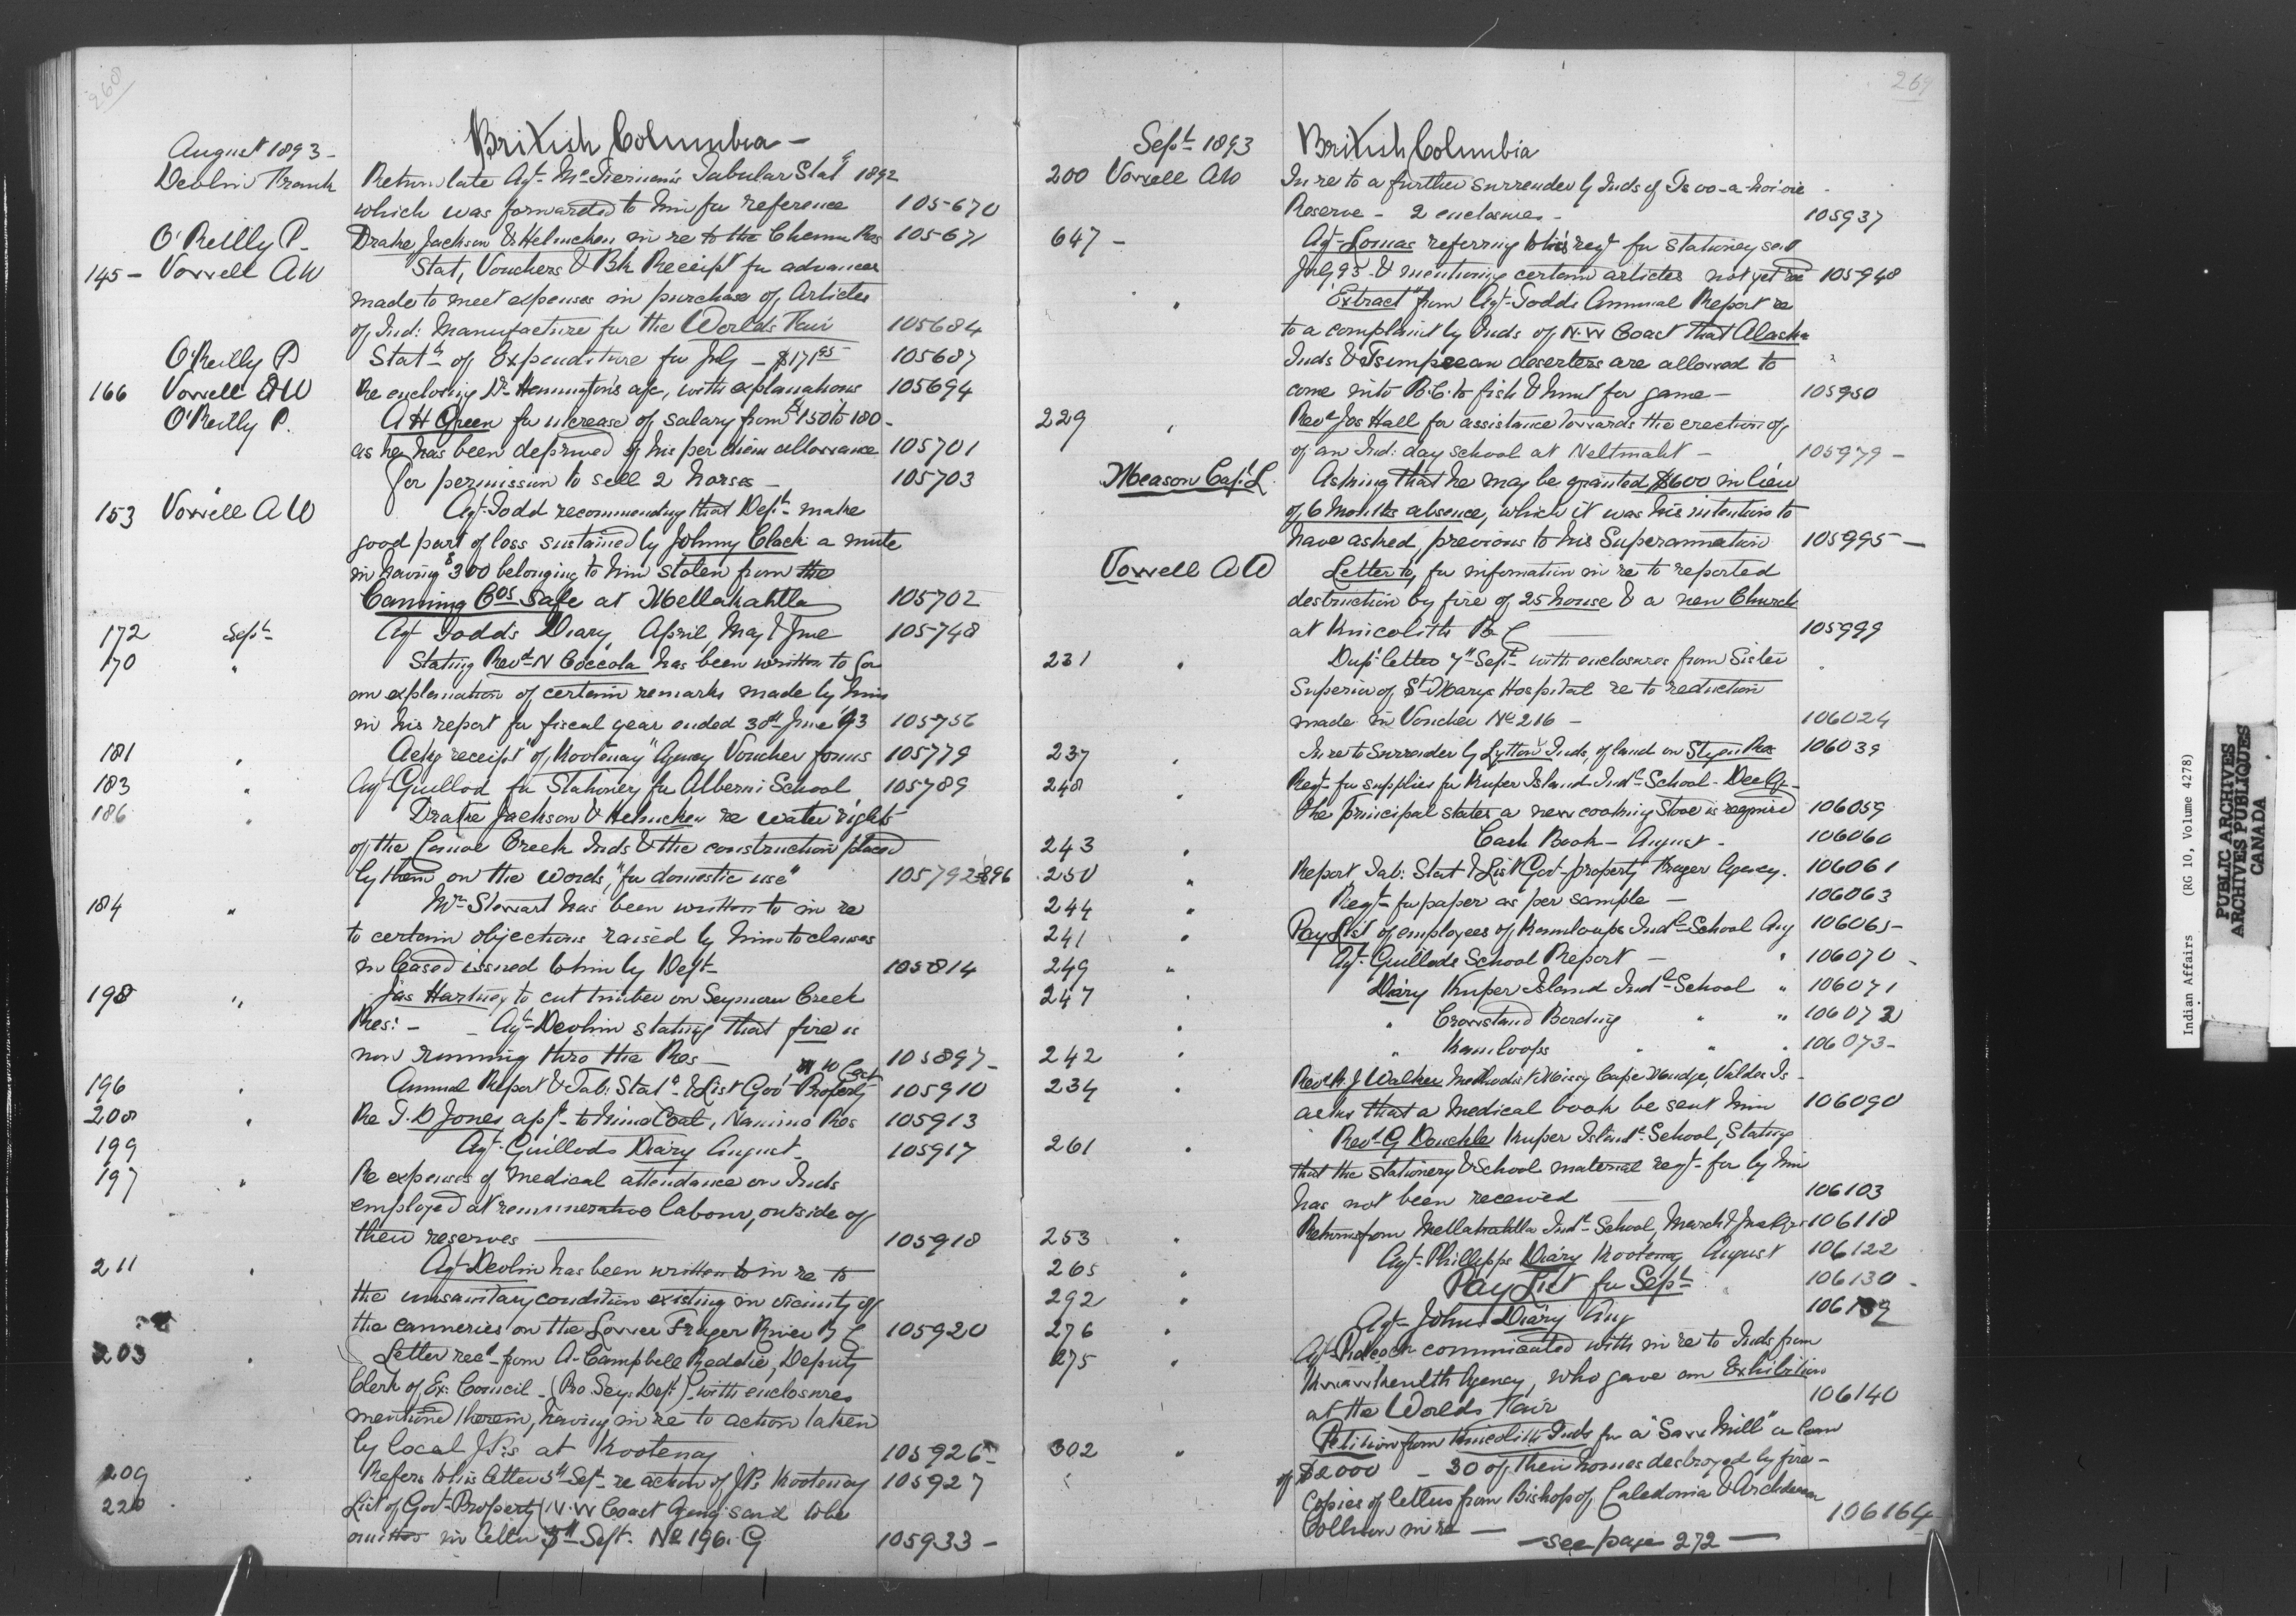 268
British Columbia -
August 1893 -
Devlin Frank Return late Agt. McTiernan's Tabular Stat 1892
which was forwarded to him for reference 105670
O'Reilly P. Drake, Jackson & Helmcken in re to the Chemu Res 105671
145 - Vowell AW Stat, Vouchers & Bk Receipt for advances
made to meet expenses in purchase of Articles
of Ind: Manufacture for the Worlds Fair 105684
O'Reilly P Statt of Expenditure for July - $171.95 105687
166 Vowell AW Re enclosing Dr Hennington's a/c, with explanations 105694
O'Reilly P. A H Green for increase of salary from $150 to 180 -
as he has been deprived of his per diem allowance 105701
For permission to sell 2 horses - 105703
153 Vowell AW Agt. Todd recommending that Dept. make
good part of loss sustained by Johnny Clack a mute
in having $300 belonging to him stolen from the
Canning Cos Safe at Metlakahtla 105702
172 Sept. Agt Todd's Diary April, May & June 105748
170 " Stating Revd N Coccola has been written to for
an explanation of certain remarks made by him
in his report for fiscal year ended 30th June '93 105756
181 " Ackg receipt of "Kootenay" Agency Voucher forms 105779
183 " Agt Guillod for Stationery for Alberni School 105789
186 " Drake Jackson & Helmcken re water rights
of the Canoe Creek Inds & the construction placed
by them on the words, "for domestic use" 105792-896
184 " Mr Stewart has been written to in re
to certain objections raised by him to clauses
in lease issued to him by Dept 105814
198 " Jas Hartney to cut timber on Seymour Creek
Res: - Agt. Devlin stating that fire is
now running thro the Res - 105897 -
N W Coast
196 " Annual Report & Tab: Statt & List Govt Property 105910
208 " Re T. D Jones, appn to mine Coal, Nanimo Res 105913
199 Agt. Guillods Diary August - 105917
197 " Re expenses of medical attendance on Inds
employed at remunerative labour, outside of
their reserves 105918
211 " Agt Devlin has been written to in re to
the unsanitary condition existing in vicinity of
the canneries on the Lower Frazer River B C 105920
203 " Letter recd from A. Campbell Reddie, Deputy
Clerk of Ex: Council - (Pro. Secy. Dept) with enclosures
mentioned therein, having in re to action taken
by local J.P.s at Kootenay 105926 -
209 " Refers to his letter 5th Sept re action of J.Ps Kootenay 105927
220 List of Govt Property (N.W Coast Agency) said to be
omitted in letter 5th Sept. No 196. G 105933 -
269
Sept. 1893 British Columbia
200 Vowell AW In re to a further surrender by Inds of
Reserve - 2 enclosures - 105937
647 - Agt. Lomas referring to his reqt for stationery sent
July 93 & mentioning certain articles not yet recd 105948
" "Extract" from Agt. Todds Annual Report re
to a complaint by Inds of N.W Coast that Alaska
Inds & Tsimpsean deserters are allowed to
come into B.C. to fish & hunt for game - 105950
229 " Revd Jas Hall for assistance towards the erection of
of an Ind: day school at - 105979 -
Meason Capt. L. Asking that he may be granted $600 in lieu
of 6 months absence, which it was his intention to
have asked, previous to his Superannuation 105995 -
Vowell AW Letter to, for information in re to reported
destruction by fire of 25 house & a new Church
at Kincolith B C 105999
231 " Dup: letter 7th Sept. with enclosures from Sister
Superior of St. Marys Hospital re to reduction
made in Voucher No 216 - 106024
237 " In re to Surrender by Lytton Inds, of land on Res 106039
248 " Reqt. for supplies for Kuper Island Indl School - Dec Qr -
the principal states a new cooking Stove is required 106059
243 " Cash Book - August - 106060
250 " Report Tab: Statt & List Govt property Frazer Agency. 106061
244 " Reqt. for paper as per sample - 106063
241 " Pay List of employees of Kamloops Indl School Aug 106065 -
249 " Agt. Guillods School Report - " 106070 -
247 " Diary Kuper Island Indl School " 106071
" " Crowstand Bording " " 106072
242 " " Kamloops " " " 106073 -
234 " Revd R. J Walker Methodist Missy Cape Mudge, Valdes Is -
asks that a medical book be sent him 106090
261 " Revd G Donckele Kuper Island School, Stating
that the stationery & School material reqt. for by him
has not been received 106103
253 " Returns from Metlakahtla Indl School, March & June Qrs 106118
265 " Agt. Phillipps Diary Kootenay August 106122
292 " Pay List for Sept. " 106130 -
276 " Agt - Johns Diary Aug 106139
275 " Agt. Pidcock communicated with in re to Inds from
Kwawkewlth Agency, who gave an Exhibition
at the Worlds Fair 106140
302 " Petition from Kincolith Inds for a "Saw Mill" a loan
of $2000 - 30 of their homes destroyed by fire -
Copies of letters from Bishop of Caledonia & Archdeacon
Collison in re - 106164 -
- see page 272 -
Indian Affairs (RG 10, Volume 4278)
PUBLIC ARCHIVES
ARCHIVES PUBLIQUES
CANADA